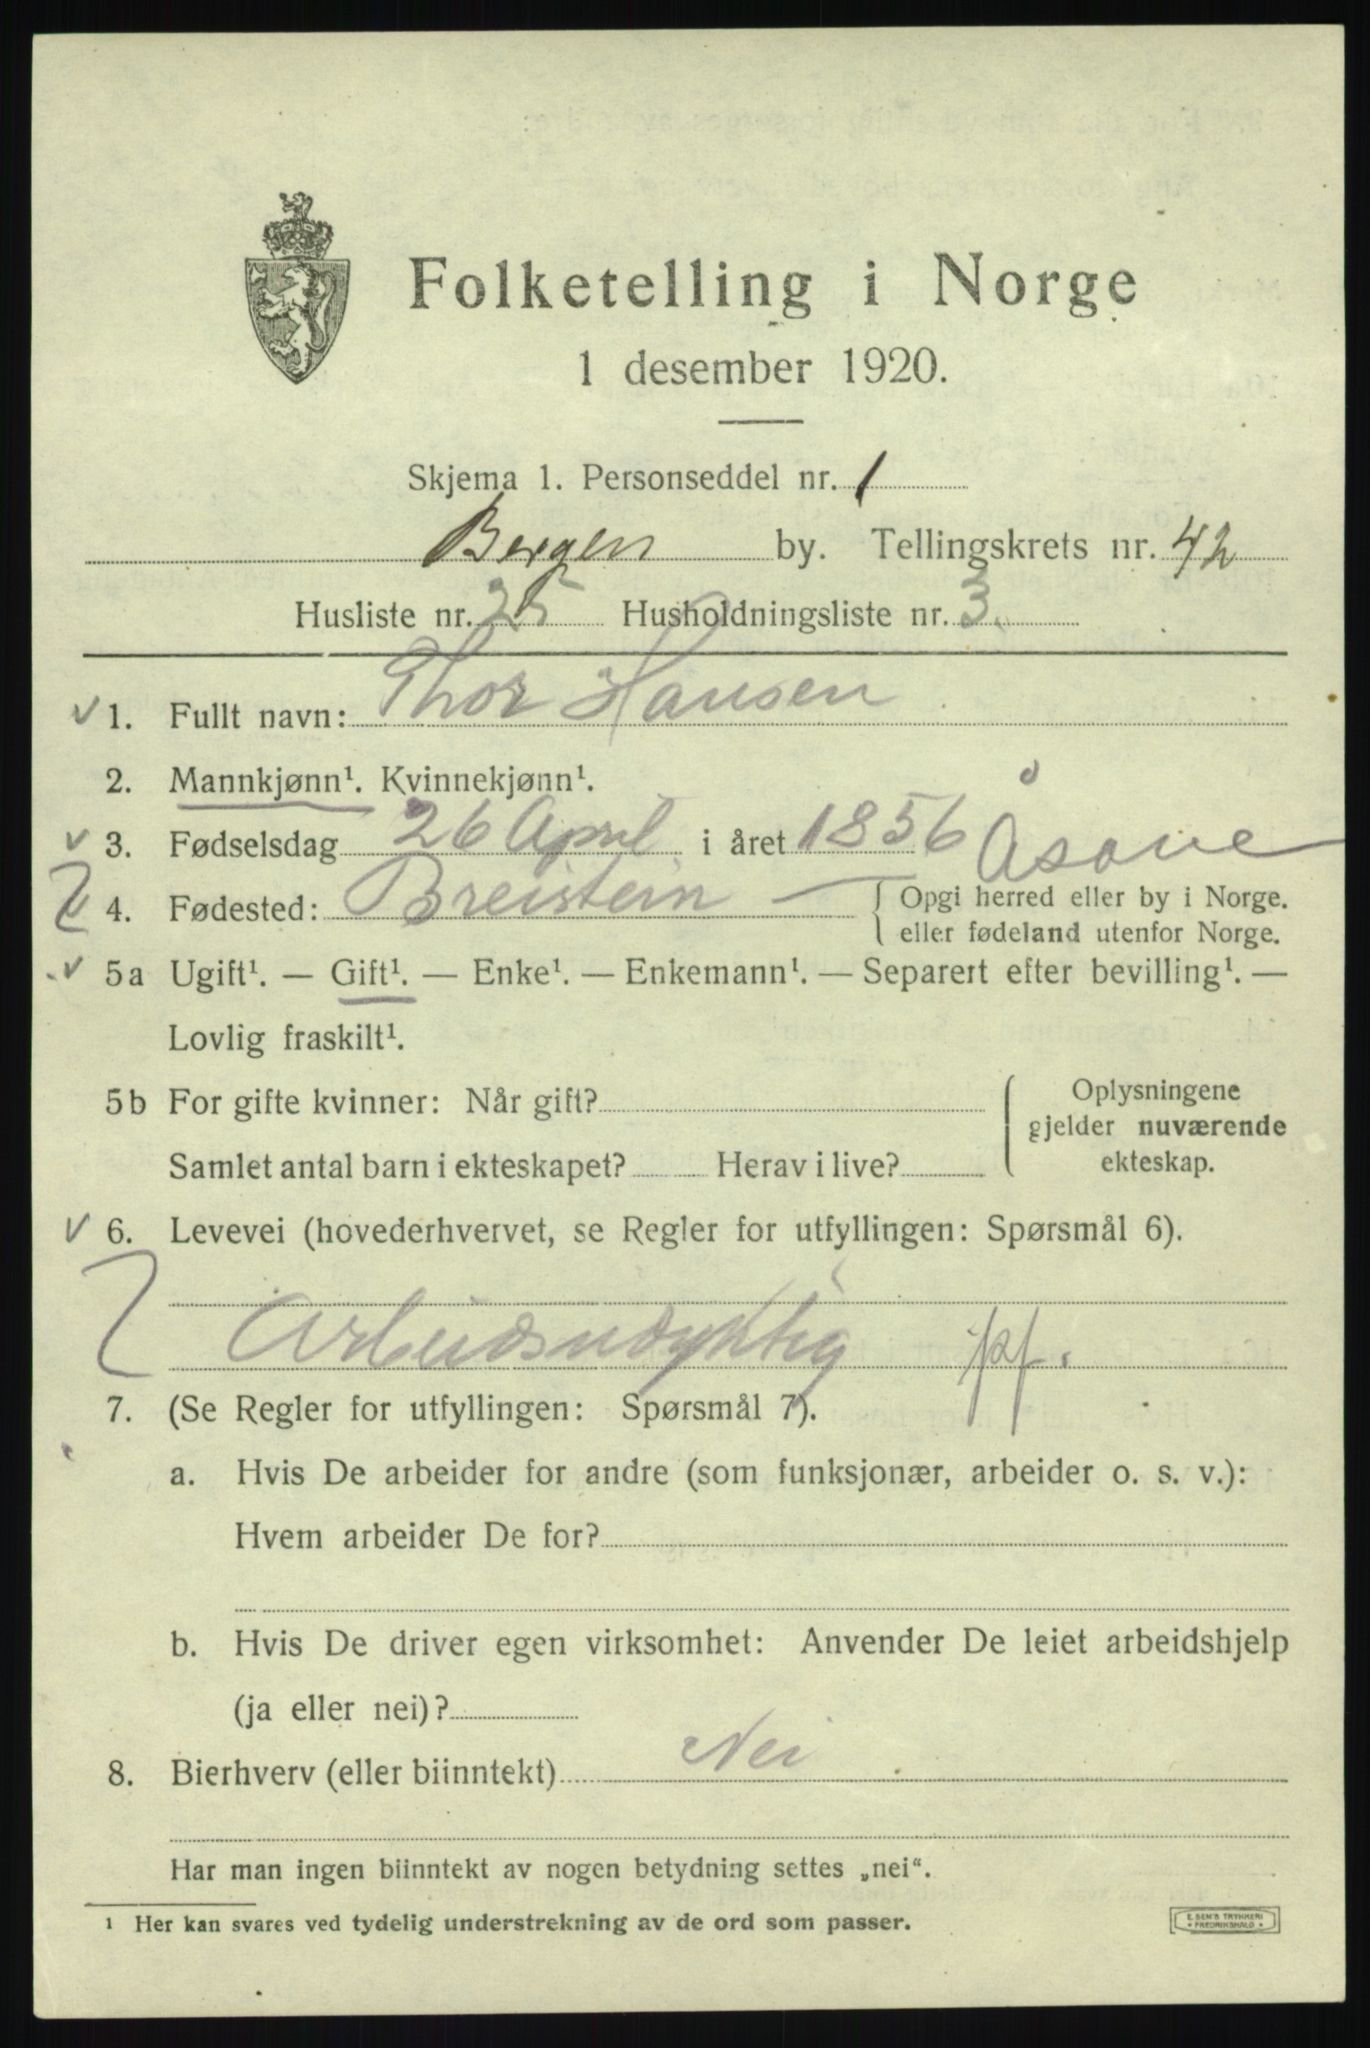 Folketelling i Norge
1 desember 1920.
Skjema 1. Personseddel nr. 1
Bergen by. Tellingskrets nr. 42
Husliste nr. 25 Husholdningsliste nr. 3.
1. Fullt navn: Thor Hansen
2. Mannkjønn¹. Kvinnekjønn¹.
3. Fødselsdag 26 April i året 1856
Åsane
4. Fødested: Breistein — { Opgi herred eller by i Norge.
eller fødeland utenfor Norge.
5a Ugift¹. — Gift¹. — Enke¹. — Enkemann¹. — Separert efter bevilling¹. —
Lovlig fraskilt¹.
5b For gifte kvinner: Når gift?
Samlet antal barn i ekteskapet? Herav i live?
Oplysningene
gjelder nuværende
ekteskap.
6. Levevei (hovederhvervet, se Regler for utfyllingen: Spørsmål 6).
Arbeidsudyktig pf.
7. (Se Regler for utfyllingen: Spørsmål 7).
a. Hvis De arbeider for andre (som funksjonær, arbeider o. s. v.):
Hvem arbeider De for?
b. Hvis De driver egen virksomhet: Anvender De leiet arbeidshjelp
(ja eller nei)?
8. Bierhverv (eller biinntekt) Nei
Har man ingen biinntekt av nogen betydning settes „nei“.
¹ Her kan svares ved tydelig understrekning av de ord som passer.
E. SEM'S TRYKKERI
FREDRIKSHALD